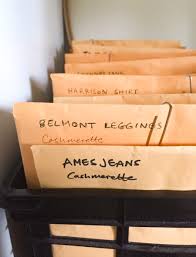 HARRISON SHIRT
BELMONT LEGGINGS
Cashmerette
AMES JEANS
Cashmerette